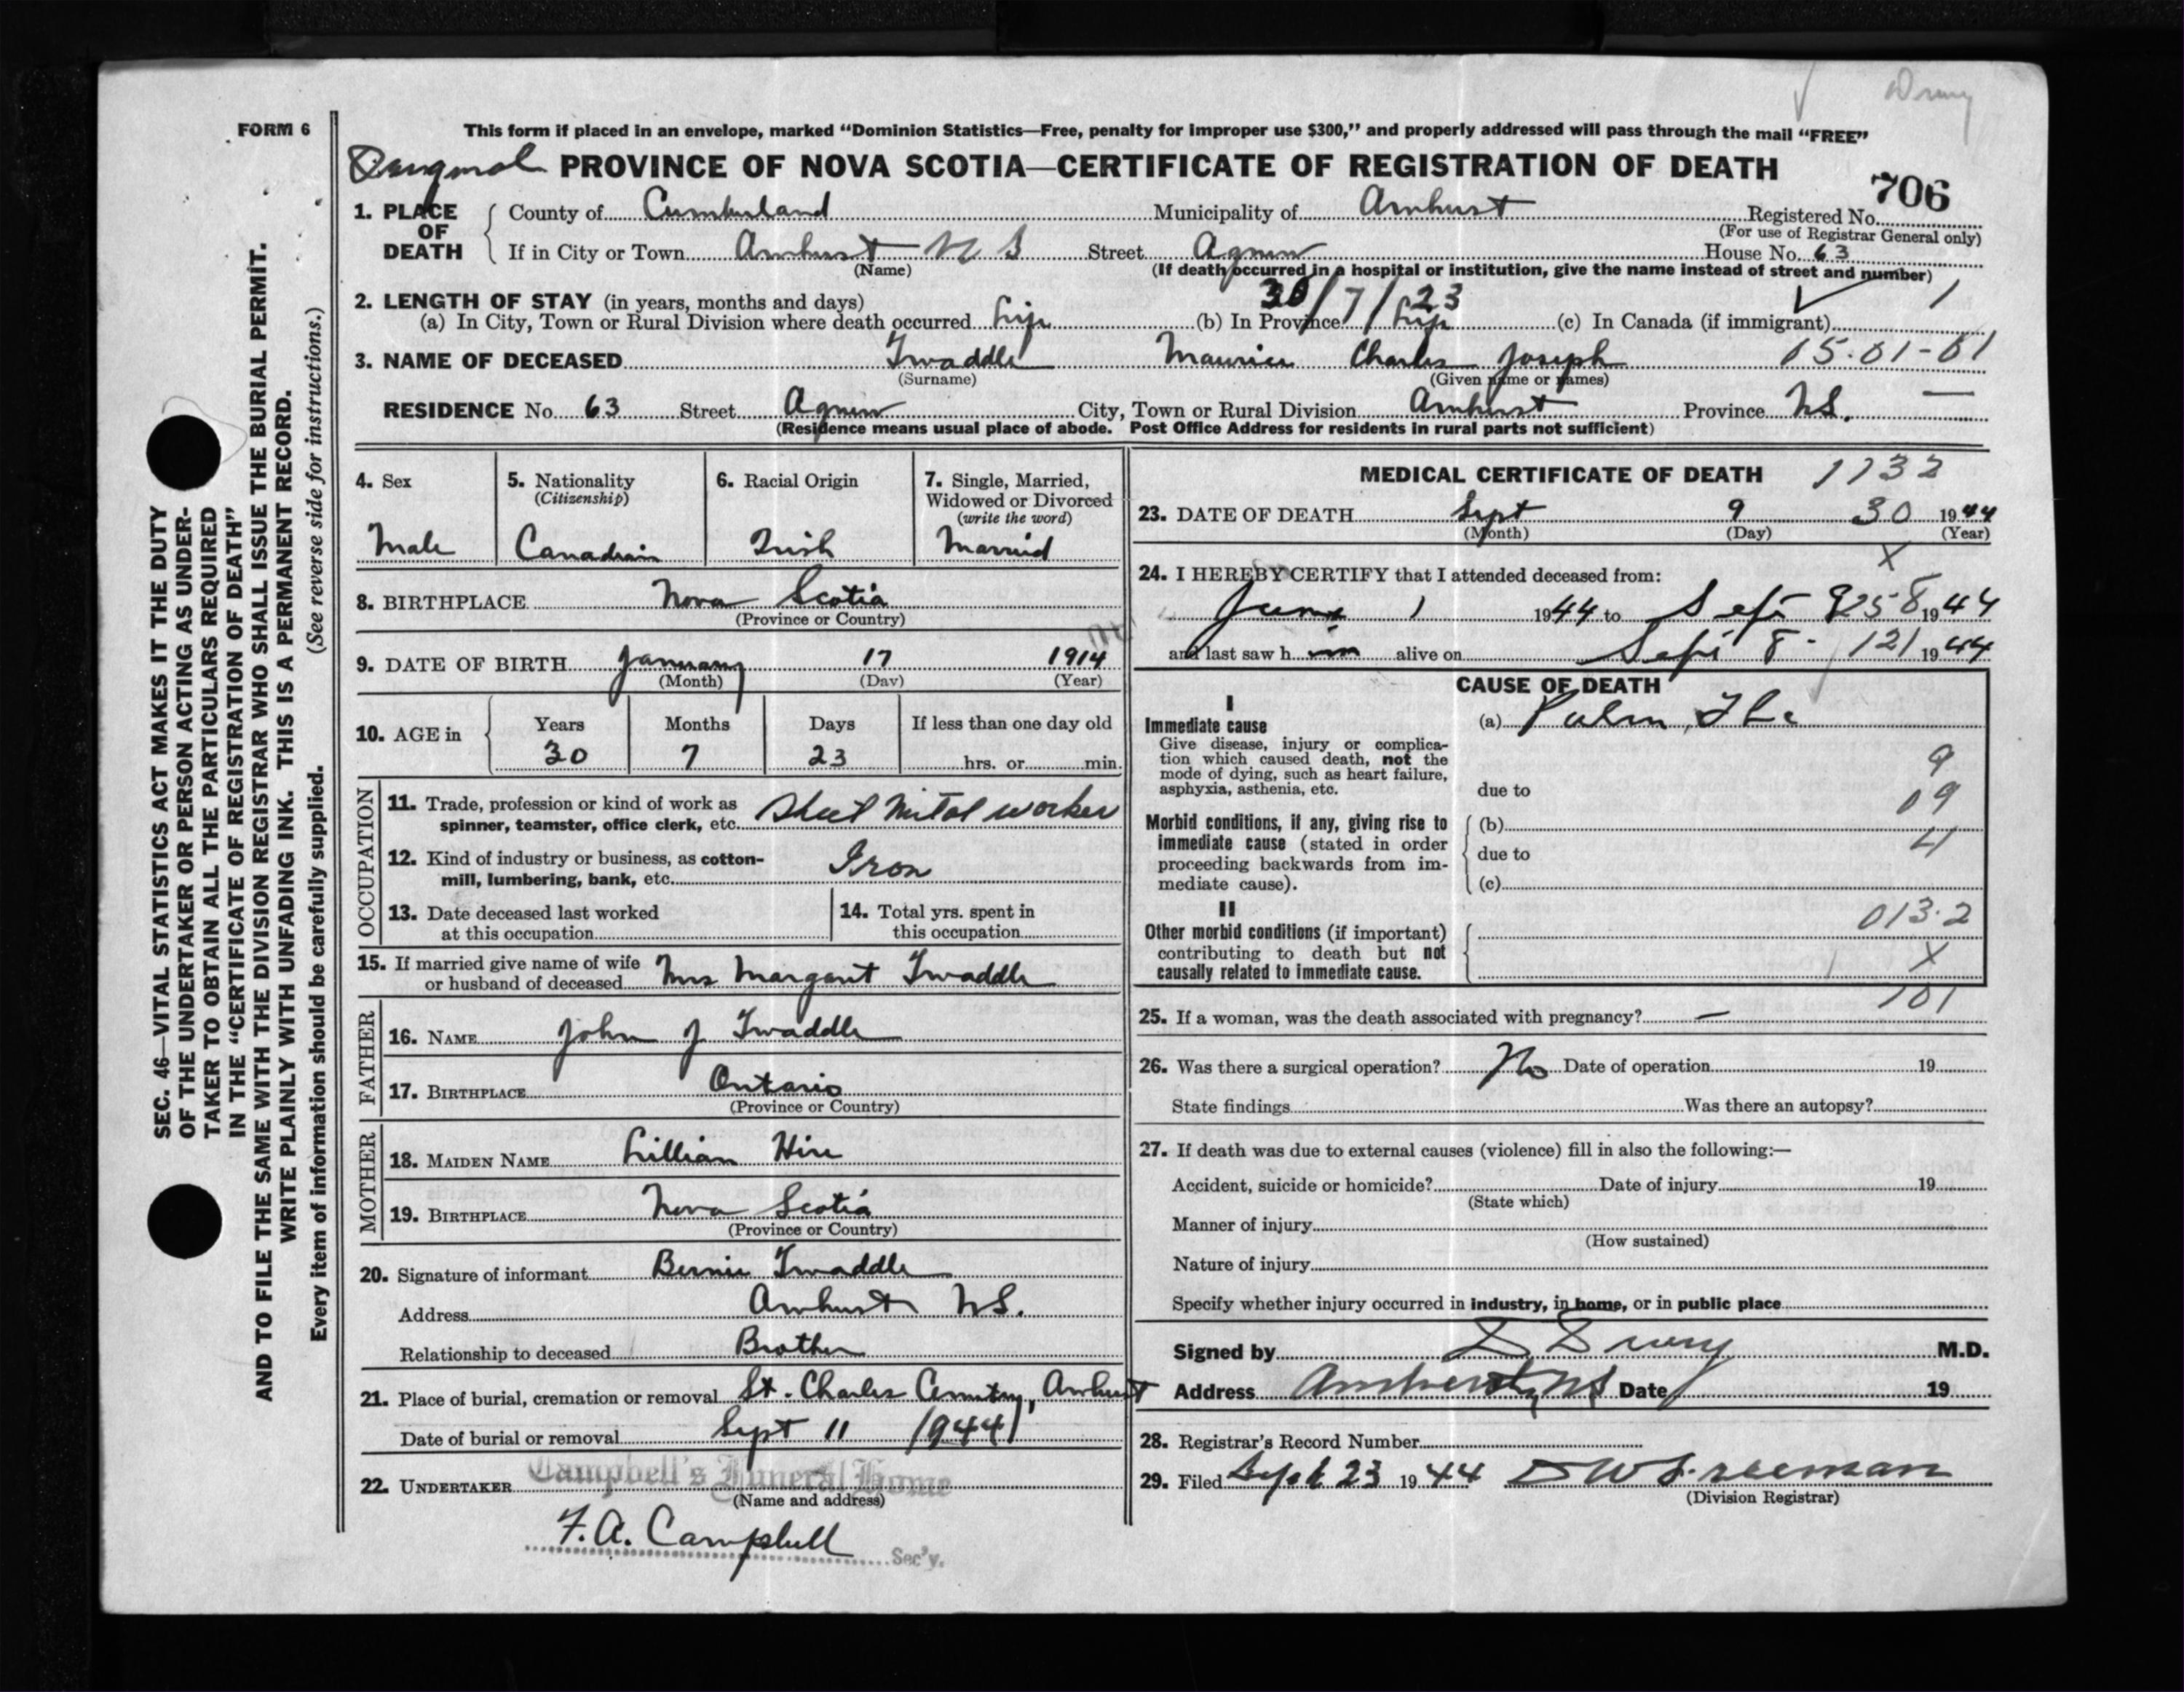 Drury
FORM 6
This form if placed in an envelope, marked “Dominion Statistics—Free, penalty for improper use $300,” and properly addressed will pass through the mail “FREE”
PROVINCE OF NOVA SCOTIA—CERTIFICATE OF REGISTRATION OF DEATH
706
1. PLACE OF DEATH County of Cumberland Municipality of Amherst Registered No.
(For use of Registrar General only)
If in City or Town Amherst N S Street Agnew House No. 63
(Name) (If death occurred in a hospital or institution, give the name instead of street and number)
2. LENGTH OF STAY (in years, months and days) 30/7/23 1
(a) In City, Town or Rural Division where death occurred Life (b) In Province Life (c) In Canada (if immigrant)
3. NAME OF DECEASED Twaddle Maurice Charles Joseph 15.01-01
(Surname) (Given name or names)
RESIDENCE No. 63 Street Agnew City, Town or Rural Division Amherst Province N.S. —
(Residence means usual place of abode. Post Office Address for residents in rural parts not sufficient)
4. Sex 5. Nationality 6. Racial Origin 7. Single, Married,
(Citizenship) Widowed or Divorced
(write the word)
Male Canadian Irish Married
8. BIRTHPLACE Nova Scotia
(Province or Country)
9. DATE OF BIRTH January 17 1914
(Month) (Day) (Year)
10. AGE in Years Months Days If less than one day old
30 7 23 hrs. or min.
OCCUPATION
11. Trade, profession or kind of work as
spinner, teamster, office clerk, etc. Sheet Metal worker
12. Kind of industry or business, as cotton-
mill, lumbering, bank, etc. Iron
13. Date deceased last worked
at this occupation
14. Total yrs. spent in
this occupation
15. If married give name of wife
or husband of deceased Mrs Margaret Twaddle
FATHER
16. NAME John J Twaddle
17. BIRTHPLACE Ontario
(Province or Country)
MOTHER
18. MAIDEN NAME Lillian
19. BIRTHPLACE Nova Scotia
(Province or Country)
20. Signature of informant Bernie Twaddle
Address Amherst N.S.
Relationship to deceased Brother
21. Place of burial, cremation or removal St. Charles Cemetery, Amherst
Date of burial or removal Sept 11 1944
22. UNDERTAKER Campbell's Funeral Home
(Name and address)
F.A. Campbell Sec'y.
MEDICAL CERTIFICATE OF DEATH 1132
23. DATE OF DEATH Sept 9 30 1944
(Month) (Day) (Year)
X
24. I HEREBY CERTIFY that I attended deceased from:
June 1 1944 to Sept 1944
and last saw h im alive on Sept 8 - 121 1944
CAUSE OF DEATH
I
Immediate cause (a) Pulm. Tbc
Give disease, injury or complica-
tion which caused death, not the
mode of dying, such as heart failure,
asphyxia, asthenia, etc. due to
9
09
Morbid conditions, if any, giving rise to (b)
immediate cause (stated in order due to
proceeding backwards from im-
mediate cause). (c)
II
013.2
Other morbid conditions (if important)
contributing to death but not
causally related to immediate cause.
X
101
25. If a woman, was the death associated with pregnancy? —
26. Was there a surgical operation? No Date of operation 19
State findings Was there an autopsy?
27. If death was due to external causes (violence) fill in also the following:—
Accident, suicide or homicide? Date of injury 19
(State which)
Manner of injury
(How sustained)
Nature of injury
Specify whether injury occurred in industry, in home, or in public place
Signed by D Drury M.D.
Address Amherst, NS Date 19
28. Registrar's Record Number
29. Filed Sept 23 1944 Freeman
(Division Registrar)
SEC. 46—VITAL STATISTICS ACT MAKES IT THE DUTY
OF THE UNDERTAKER OR PERSON ACTING AS UNDER-
TAKER TO OBTAIN ALL THE PARTICULARS REQUIRED
IN THE “CERTIFICATE OF REGISTRATION OF DEATH”
AND TO FILE THE SAME WITH THE DIVISION REGISTRAR WHO SHALL ISSUE THE BURIAL PERMIT.
WRITE PLAINLY WITH UNFADING INK. THIS IS A PERMANENT RECORD.
Every item of information should be carefully supplied. (See reverse side for instructions.)